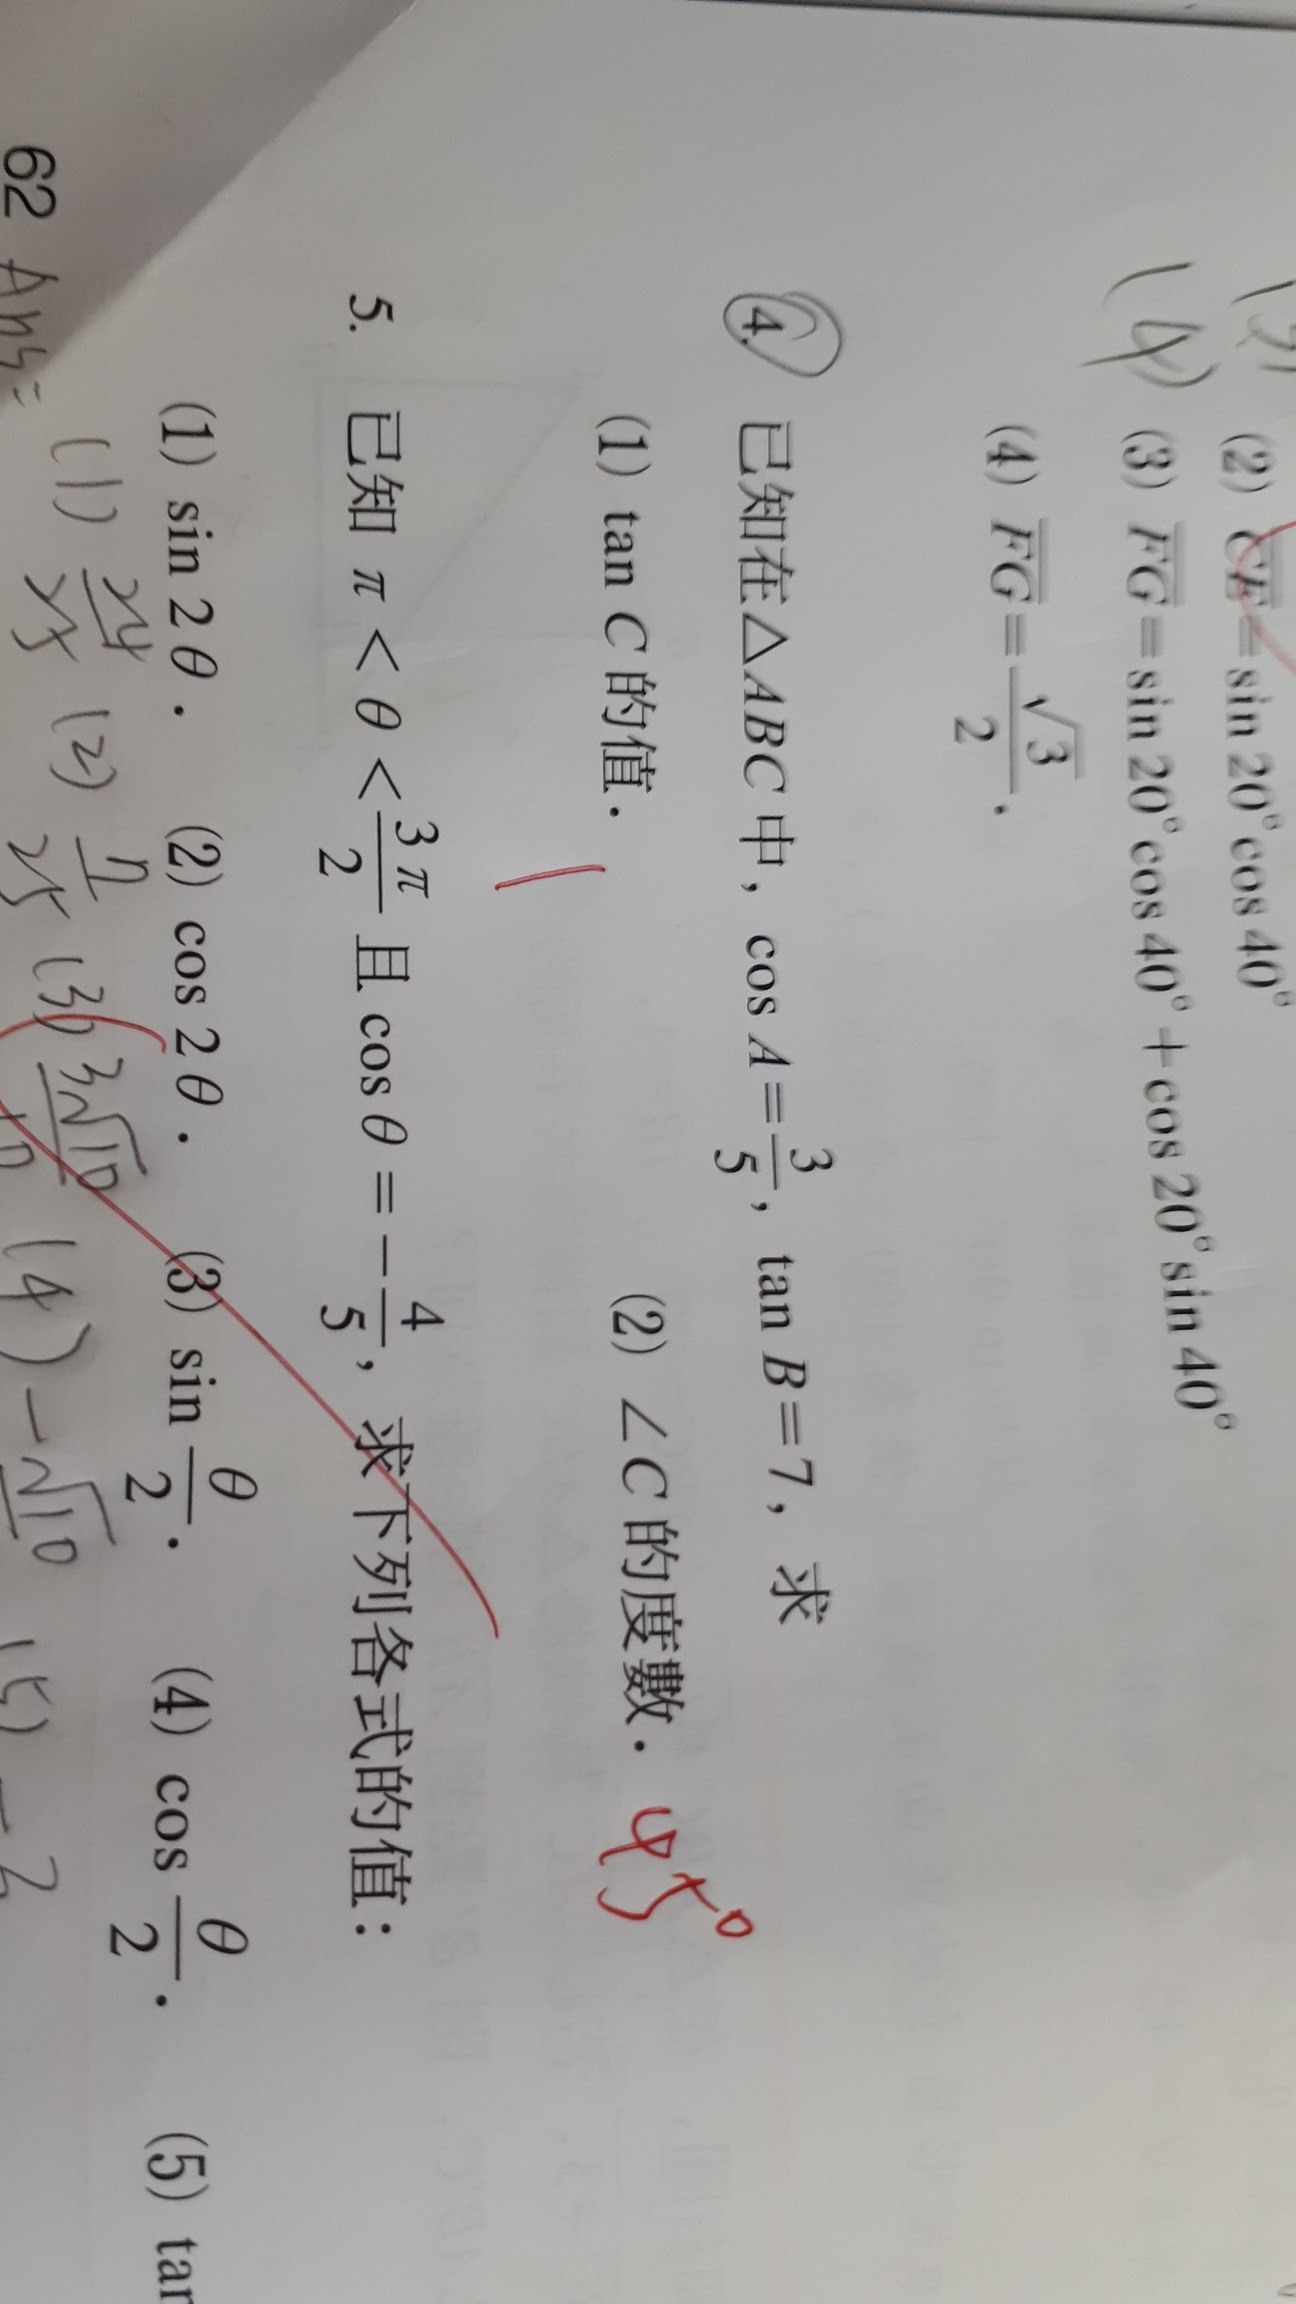 (2) CE=sin 20°cos 40°
(4) (3) FG=sin 20°cos 40°+cos 20°sin 40°
(4) FG=√3/2.
4. 已知在△ABC中，cos A=3/5，tan B=7，求
(1) tan C的值. (2) ∠C的度數. 45°
1
5. 已知 π<θ<3π/2 且 cos θ=-4/5，求下列各式的值：
(1) sin 2θ. (2) cos 2θ. (3) sin θ/2. (4) cos θ/2. (5) tan
62 Ans: (1) 24/25 (2) 7/25 (3) 3√10/10 (4) -√10 (5) -3